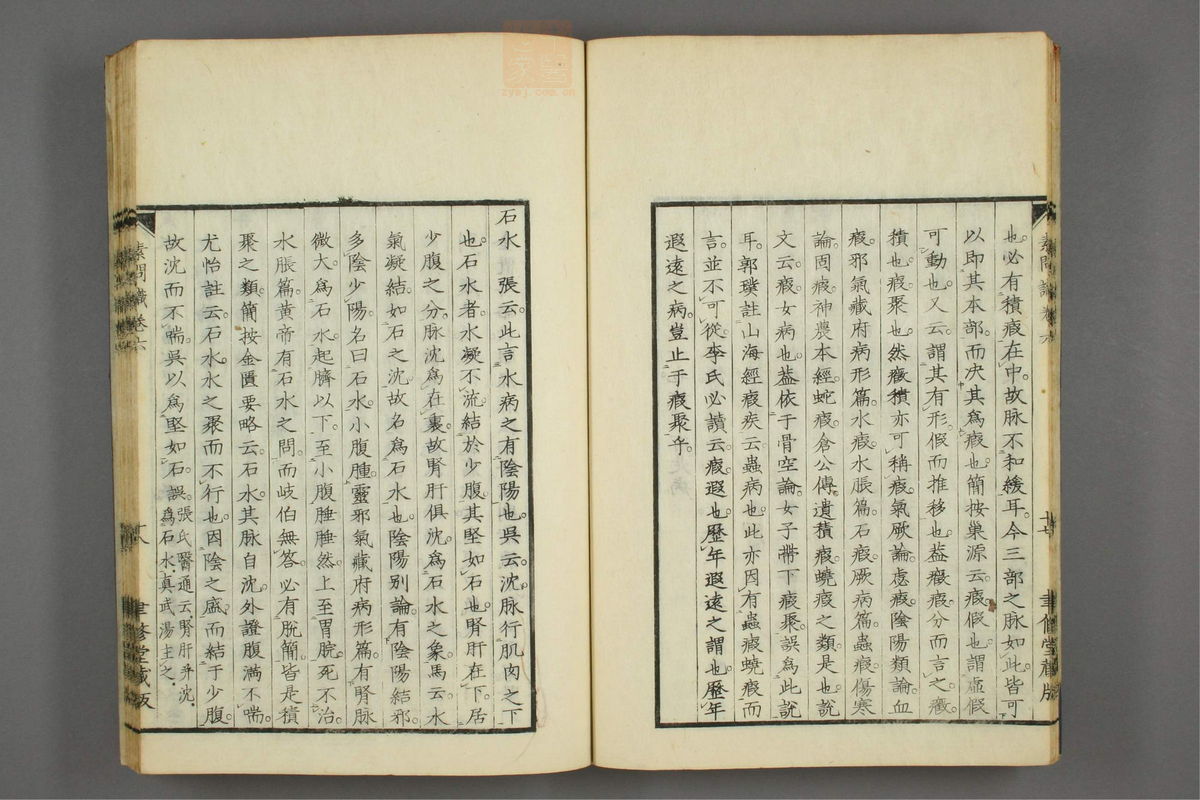 也。必有積瘕在中。故脉不和緩耳。今三部之脉如此。皆可
以即其本部。而决其爲瘕也。簡按巢源云。瘕假也。謂虛假
可動也。又云。謂其有形。假而推移也。葢癥瘕分而言之。癥
積也。瘕聚也。然癥積亦可稱瘕。氣厥論。虙瘕。陰陽類論。血
瘕。邪氣藏府病形篇。水瘕。水脹篇。石瘕。厥病篇。蟲瘕。傷寒
論。固瘕。神農本經。蛇瘕。倉公傳遺積瘕。蟯瘕之類是也。説
文云。瘕女病也。葢依于骨空論。女子帶下瘕聚。誤爲此説
耳。郭璞註山海經瘕疾云。蟲病也。此亦因有蟲瘕蟯瘕而
言。並不可從。李氏必讀云。瘕遐也。歷年遐遠之謂也。歷年
遐遠之病。豈止于瘕聚乎。
素問識卷六
聿修堂藏版
石水 張云。此言水病之有陰陽也。吳云。沈脉行肌肉之下
也。石水者。水凝不流。結於少腹。其堅如石也。腎肝在下。居
少腹之分。脉沈爲在裏。故腎肝俱沈。爲石水之象。馬云。水
氣凝結。如石之沈。故名爲石水也。陰陽别論。有陰陽結邪。
多陰少陽。名曰石水。小腹腫。靈邪氣藏府病形篇。有腎脉
微大。爲石水。起臍以下。至小腹腄腄然。上至胃脘。死不治。
水脹篇。黄帝有石水之問。而岐伯無答。必有脫簡。皆是積
聚之類。簡按金匱要略云。石水。其脉自沈。外證腹滿不喘。
尤怡註云。石水。水之聚而不行也。因陰之盛。而結于少腹。
故沈而不喘。吳以爲堅如石。誤。張氏醫通云。腎肝并沈。爲石水。眞武湯主之。
素問識卷六
聿修堂藏版
zysj.com.cn